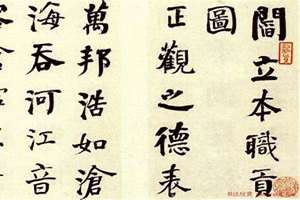 閻立本職貢
圖
正觀之德來
萬邦浩如滄
海吞河江音